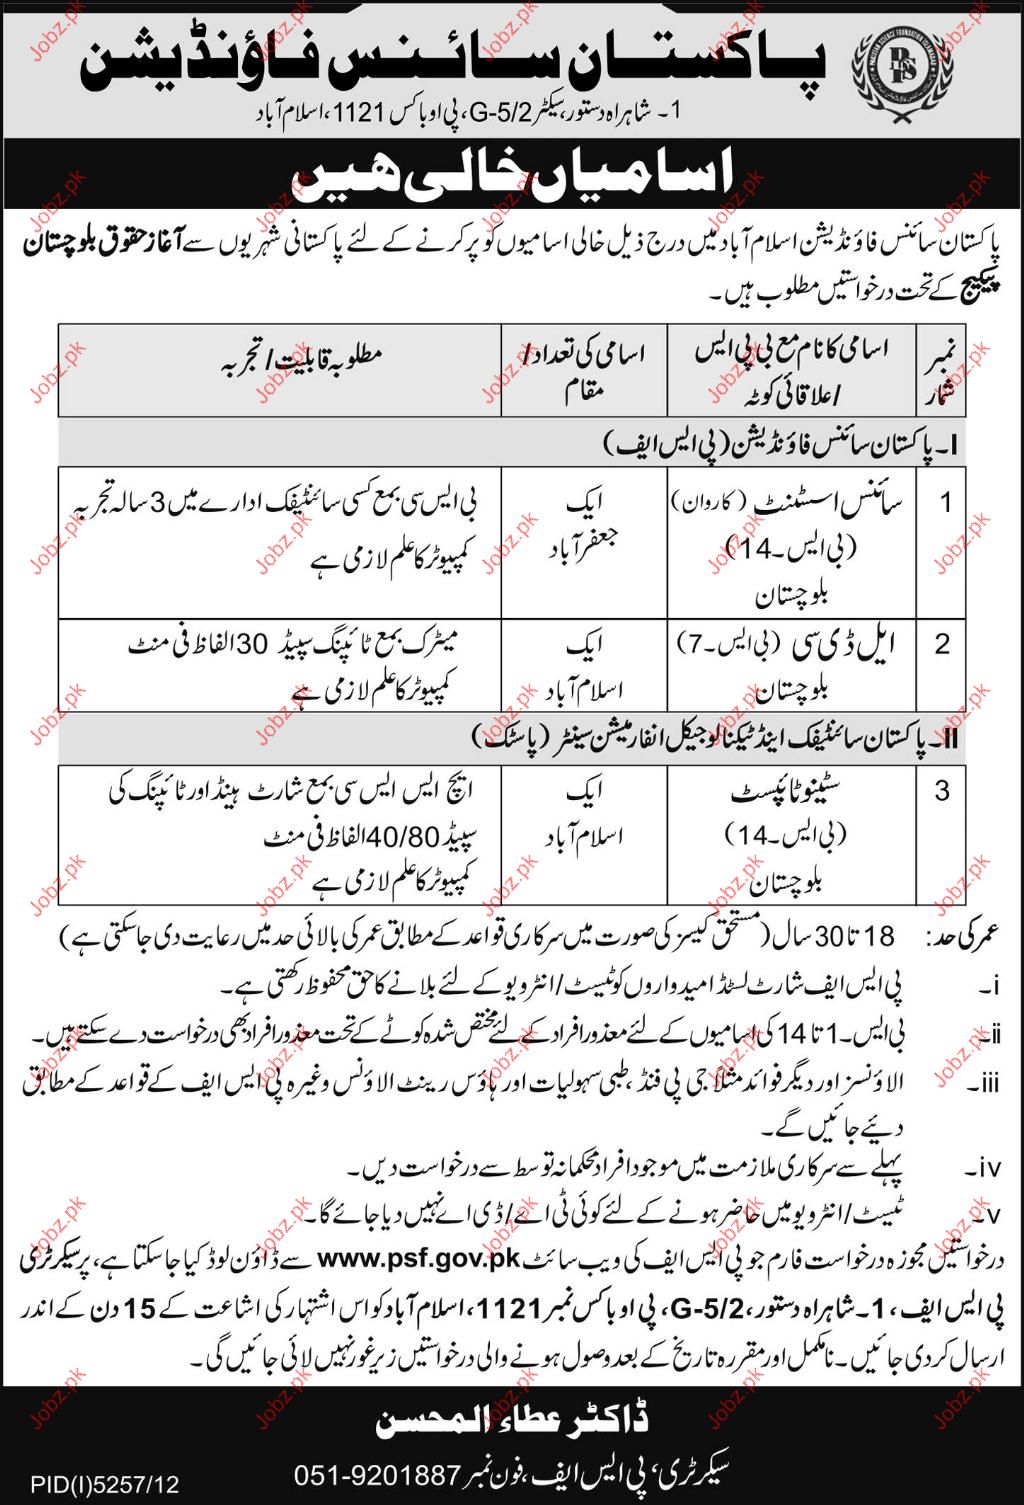 پاکستان سائنس فاؤنڈیشن
1۔ شاہراہ دستور، سیکٹر G-5/2، پی او باکس 1121، اسلام آباد
اسامیاں خالی ہیں
پاکستان سائنس فاؤنڈیشن اسلام آباد میں درج ذیل خالی اسامیوں کو پُر کرنے کے لئے پاکستانی شہریوں سے آغاز حقوق بلوچستان
پیکیج کے تحت درخواستیں مطلوب ہیں۔
نمبر شمار
اسامی کا نام مع بی پی ایس
/علاقائی کوٹہ
اسامی کی تعداد/
مقام
مطلوبہ قابلیت/تجربہ
I۔ پاکستان سائنس فاؤنڈیشن (پی ایس ایف)
1
سائنس اسسٹنٹ (کاروان)
(بی ایس۔14)
بلوچستان
ایک
جعفرآباد
بی ایس سی بمع کسی سائنٹیفک ادارے میں 3 سالہ تجربہ
کمپیوٹر کا علم لازمی ہے
2
ایل ڈی سی (بی ایس۔7)
بلوچستان
ایک
اسلام آباد
میٹرک بمع ٹائپنگ سپیڈ 30 الفاظ فی منٹ
کمپیوٹر کا علم لازمی ہے
II۔ پاکستان سائنٹیفک اینڈ ٹیکنالوجیکل انفارمیشن سینٹر (پاسٹک)
3
سٹینو ٹائپسٹ
(بی ایس۔14)
بلوچستان
ایک
اسلام آباد
ایچ ایس ایس سی بمع شارٹ ہینڈ اور ٹائپنگ کی
سپیڈ 40/80 الفاظ فی منٹ
کمپیوٹر کا علم لازمی ہے
عمر کی حد: 18 تا 30 سال (مستحق کیسز کی صورت میں سرکاری قواعد کے مطابق عمر کی بالائی حد میں رعایت دی جا سکتی ہے)
i۔ پی ایس ایف شارٹ لسٹڈ امیدواروں کو ٹیسٹ/انٹرویو کے لئے بلانے کا حق محفوظ رکھتی ہے۔
ii۔ بی ایس۔1 تا 14 کی اسامیوں کے لئے معذور افراد کے لئے مختص شدہ کوٹے کے تحت معذور افراد بھی درخواست دے سکتے ہیں۔
iii۔ الاؤنسز اور دیگر فوائد مثلاً جی پی فنڈ، طبی سہولیات اور ہاؤس رینٹ الاؤنس وغیرہ پی ایس ایف کے قواعد کے مطابق
دیئے جائیں گے۔
iv۔ پہلے سے سرکاری ملازمت میں موجود افراد محکمانہ توسط سے درخواست دیں۔
v۔ ٹیسٹ/انٹرویو میں حاضر ہونے کے لئے کوئی ٹی اے/ڈی اے نہیں دیا جائے گا۔
درخواستیں مجوزہ درخواست فارم جو پی ایس ایف کی ویب سائٹ www.psf.gov.pk سے ڈاؤن لوڈ کیا جا سکتا ہے، پر سیکرٹری
پی ایس ایف، 1۔شاہراہ دستور، G-5/2، پی او باکس نمبر 1121، اسلام آباد کو اس اشتہار کی اشاعت کے 15 دن کے اندر
ارسال کر دی جائیں۔ نامکمل اور مقررہ تاریخ کے بعد وصول ہونے والی درخواستیں زیر غور نہیں لائی جائیں گی۔
ڈاکٹر عطاء المحسن
سیکرٹری، پی ایس ایف، فون نمبر 051-9201887
PID(I)5257/12
Jobz.pk